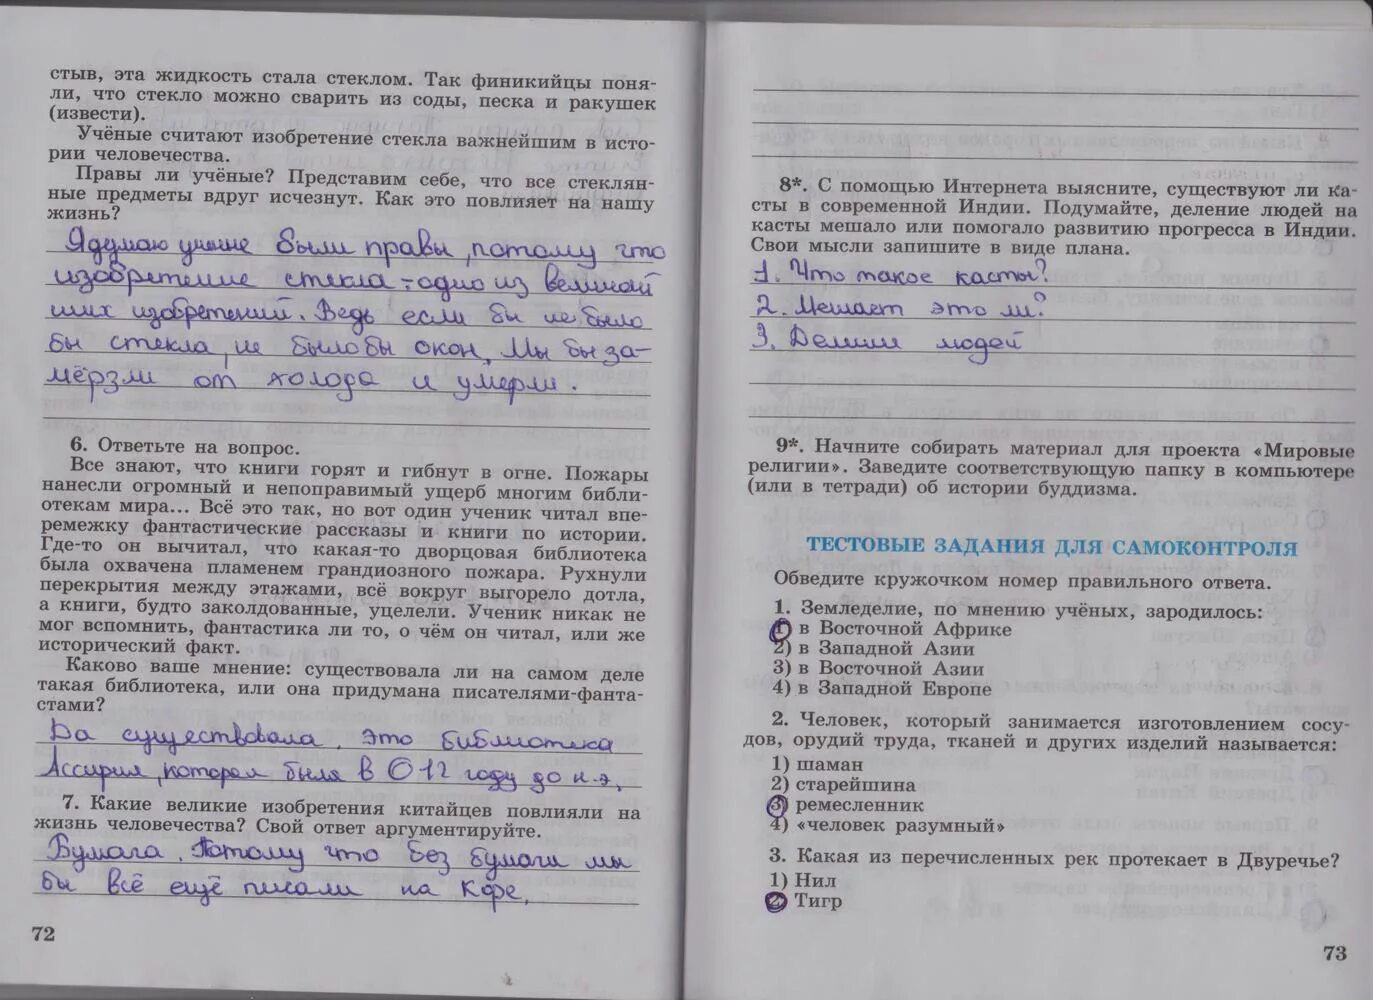 стыв, эта жидкость стала стеклом. Так финикийцы поня-
ли, что стекло можно сварить из соды, песка и ракушек
(извести).
Учёные считают изобретение стекла важнейшим в исто-
рии человечества.
Правы ли учёные? Представим себе, что все стеклян-
ные предметы вдруг исчезнут. Как это повлияет на нашу
жизнь?
Я думаю учёные были правы, потому что
изобретение стекла - одно из великой
ших изобретений. Ведь если бы не было
бы стекла, не было бы окон. Мы бы за-
мёрзли от холода и умерли.
6. Ответьте на вопрос.
Все знают, что книги горят и гибнут в огне. Пожары
нанесли огромный и непоправимый ущерб многим библи-
отекам мира... Всё это так, но вот один ученик читал впе-
ремежку фантастические рассказы и книги по истории.
Где-то он вычитал, что какая-то дворцовая библиотека
была охвачена пламенем грандиозного пожара. Рухнули
перекрытия между этажами, всё вокруг выгорело дотла,
а книги, будто заколдованные, уцелели. Ученик никак не
мог вспомнить, фантастика ли то, о чём он читал, или же
исторический факт.
Каково ваше мнение: существовала ли на самом деле
такая библиотека, или она придумана писателями-фанта-
стами?
Да существовала, это библиотека
Ассирия, которая была в 612 году до н.э,
7. Какие великие изобретения китайцев повлияли на
жизнь человечества? Свой ответ аргументируйте.
Бумага. Потому что без бумаги мы
бы всё ещё писали на коре.
72
8*. С помощью Интернета выясните, существуют ли ка-
сты в современной Индии. Подумайте, деление людей на
касты мешало или помогало развитию прогресса в Индии.
Свои мысли запишите в виде плана.
1. Что такое касты?
2. Мешает это ли?
3. Делили людей
9*. Начните собирать материал для проекта «Мировые
религии». Заведите соответствующую папку в компьютере
(или в тетради) об истории буддизма.
ТЕСТОВЫЕ ЗАДАНИЯ ДЛЯ САМОКОНТРОЛЯ
Обведите кружочком номер правильного ответа.
1. Земледелие, по мнению учёных, зародилось:
1) в Восточной Африке
2) в Западной Азии
3) в Восточной Азии
4) в Западной Европе
2. Человек, который занимается изготовлением сосу-
дов, орудий труда, тканей и других изделий называется:
1) шаман
2) старейшина
3) ремесленник
4) «человек разумный»
3. Какая из перечисленных рек протекает в Двуречье?
1) Нил
2) Тигр
73